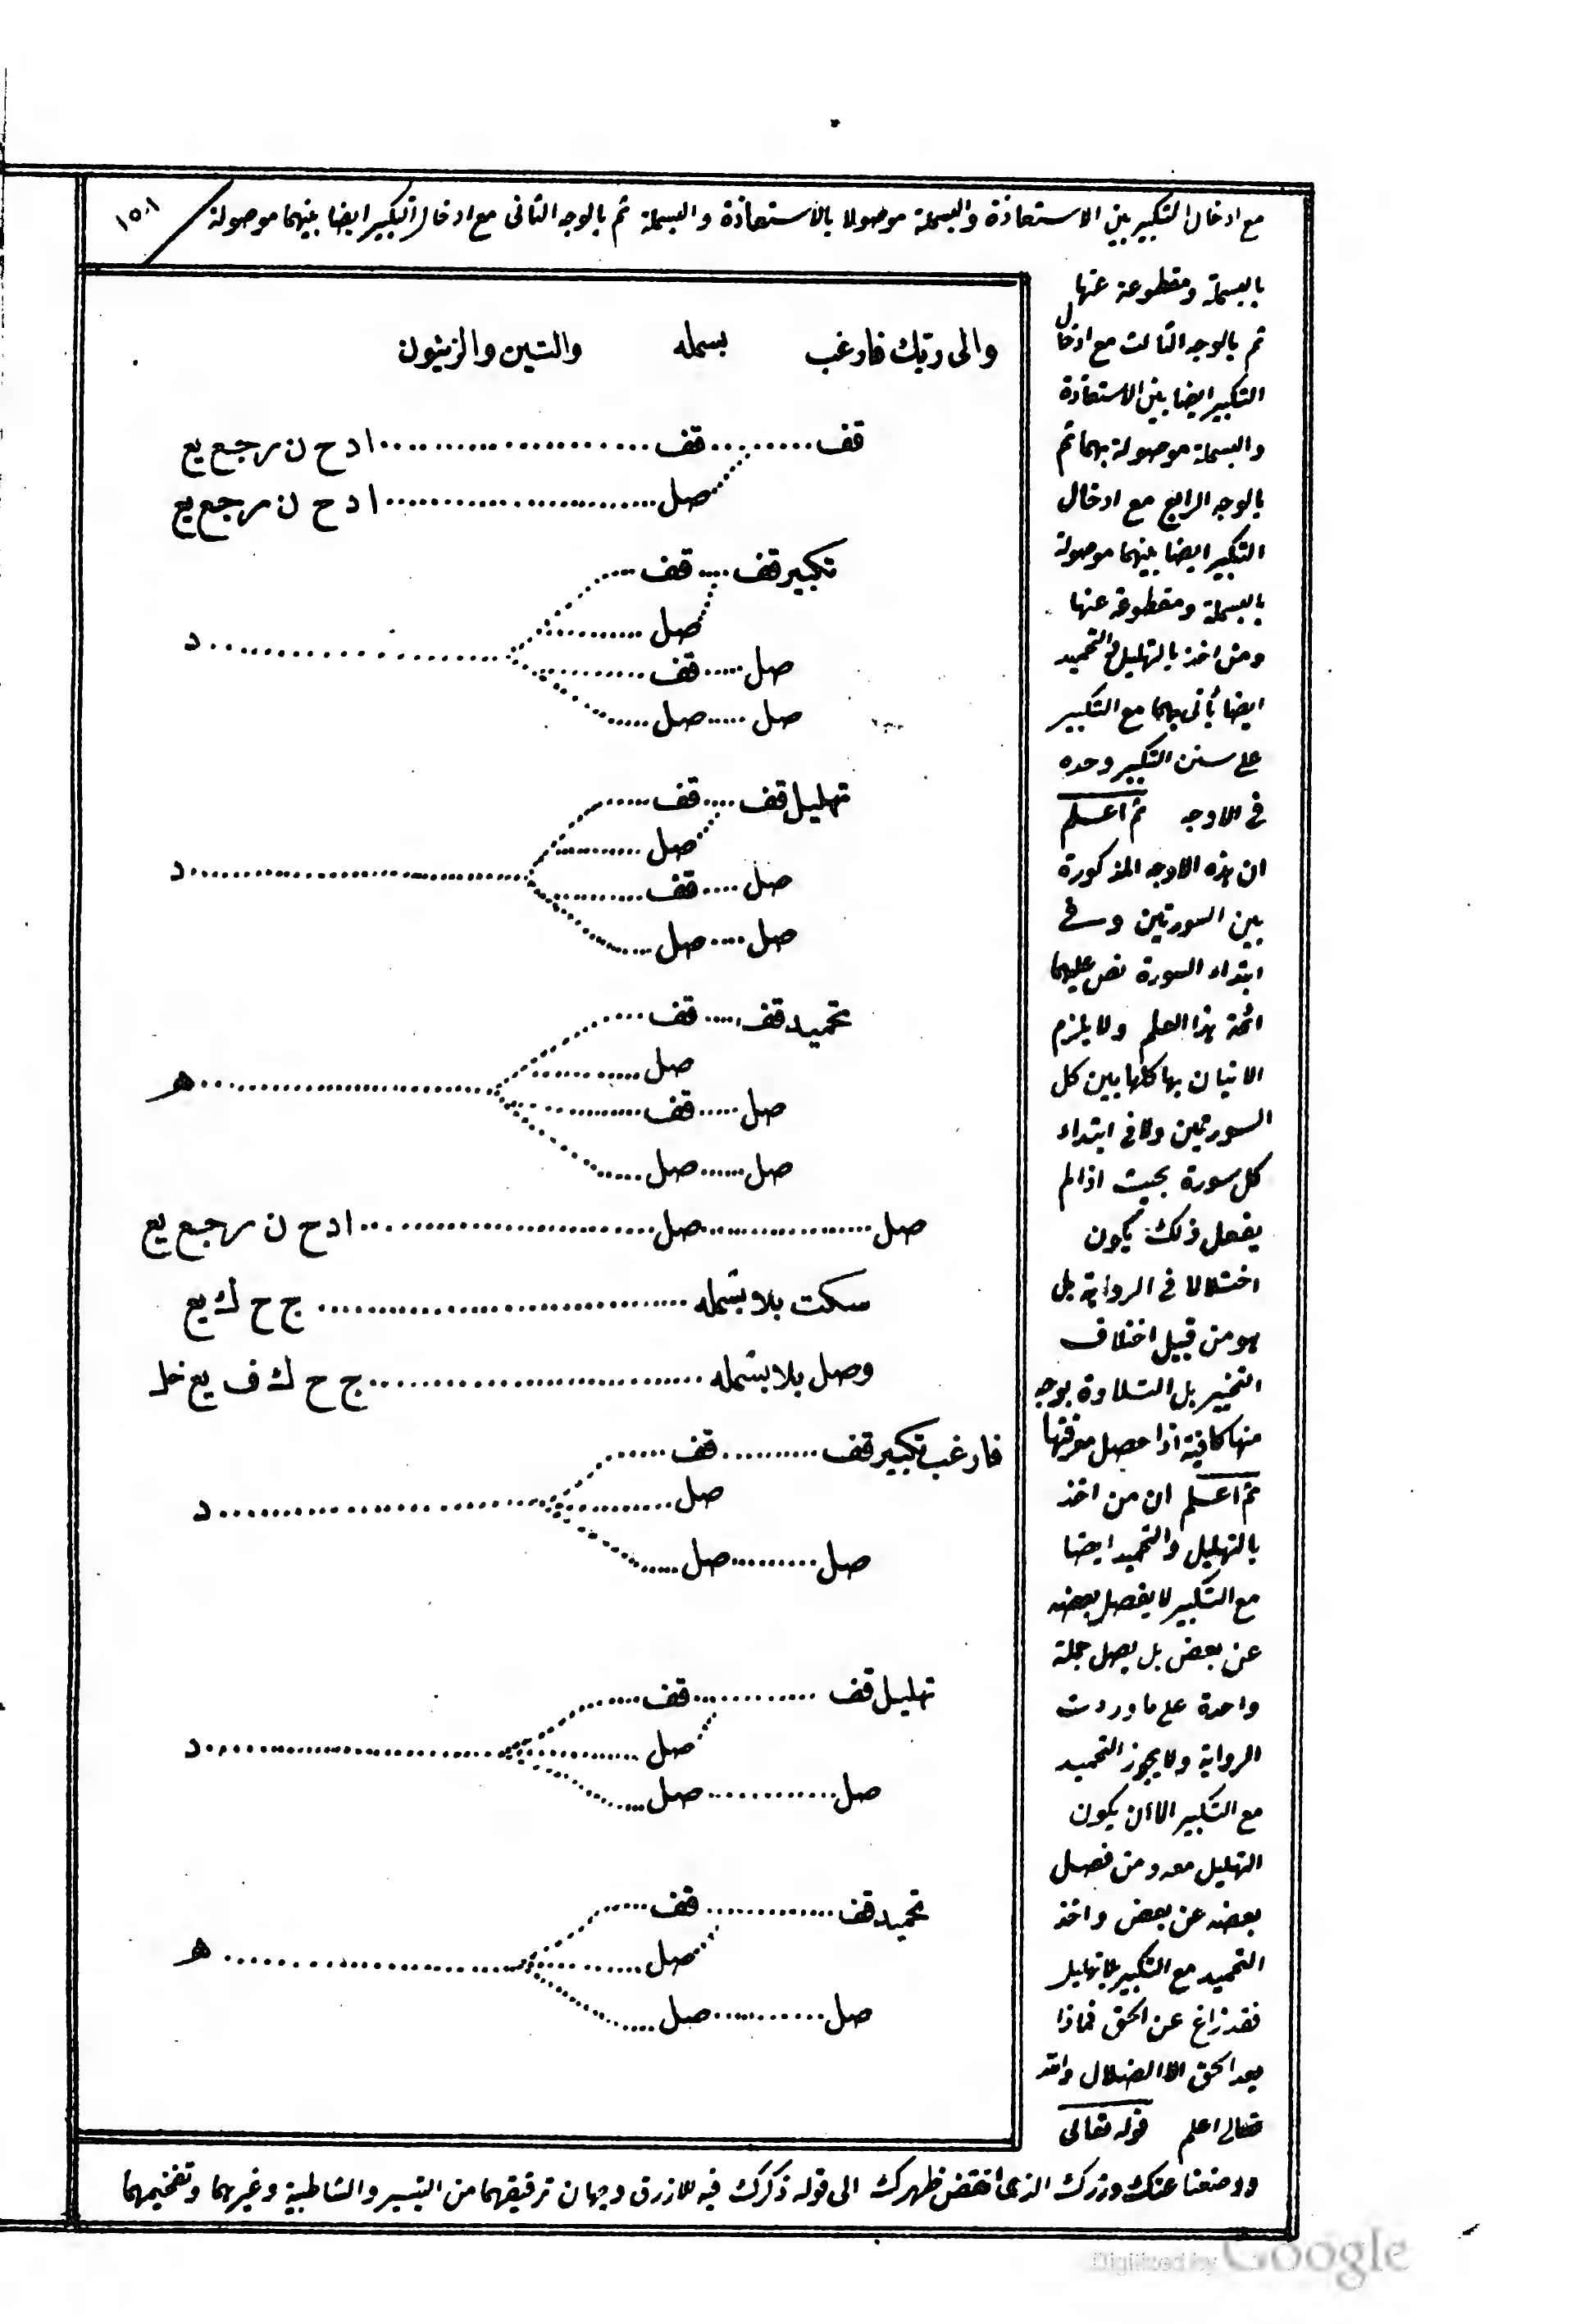 مع ادخال التكبير بين الاستعاذة والبسملة موصولا بالاستعاذة والبسملة ثم بالوجه الثانى مع ادخال التكبير ايضا بينهما موصولة
١٥٠١
بالبسملة ومقطوعة عنها
ثم بالوجه الثالث مع ادخال
التكبير ايضا بين الاستعاذة
والبسملة موصولة بهما ثم
بالوجه الرابع مع ادخال
التكبير ايضا بينهما موصولة
بالبسملة ومقطوعة عنها
ومن اخذ بالتهليل والتحميد
ايضا يأتى بهما مع التكبير
على سنن التكبير وحده
فى الاوجه ثم اعلم
ان هذه الاوجه المذكورة
بين السورتين وفى
ابتداء السورة نص عليهما
ائمة هذا العلم ولا يلزم
الاتيان بها كلها بين كل
السورتين ولا فى ابتداء
كل سورة بحيث اذا لم
يفعل ذلك يكون
اختلالا فى الرواية بل
هو من قبيل اختلاف
التخيير بل التلاوة بوجه
منها كافية اذا حصل معرفتها
ثم اعلم ان من اخذ
بالتهليل والتحميد ايضا
مع التكبير لا يفصل بعضه
عن بعض بل يصل جملة
واحدة على ما وردت
الرواية ولا يجوز التحميد
مع التكبير الا ان يكون
التهليل معه ومن فصل
بعضه عن بعض واخذ
التحميد مع التكبير بلا تهليل
فقد زاغ عن الحق فماذا
بعد الحق الا الضلال والله
تعالى اعلم قوله تعالى
ووضعنا عنك وزرك الذى انقض ظهرك الى قوله ذكرك فيه للازرق وجهان ترقيقهما من التيسير والشاطبية وغيرهما وتفخيمهما
والى ربك فارغب بسمله والتين والزيتون
قف قف ا د ح ن ر جع يع
صل ا د ح ن ر جع يع
تكبير قف قف
صل
صل قف
د
صل صل
تهليل قف قف
صل
صل قف
د
صل صل
تحميد قف قف
صل
صل قف
هـ
صل صل
صل صل ا د ح ن ر جع يع
سكت بلا بسمله ج ح ك يع
وصل بلا بسمله ج ح ك ف يع خل
فارغب تكبير قف قف
صل
د
صل صل
تهليل قف قف
صل
د
صل صل
تحميد قف قف
صل
هـ
صل صل
Digitized by Google